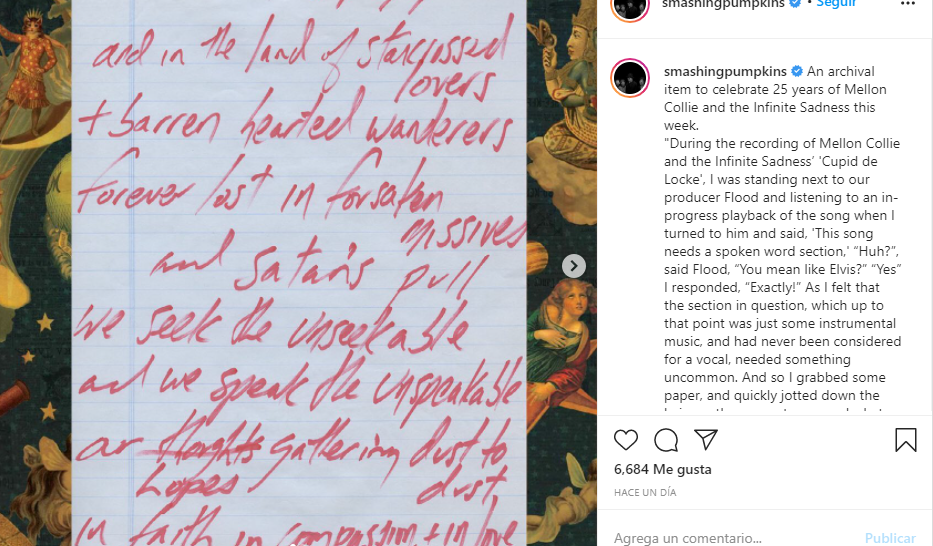 and in the land of starcrossed
lovers
+ barren hearted wanderers
forever lost in forsaken
missives
and satan's pull
we seek the unseekable
and we speak the unspeakable
our thoughts gathering dust to
hopes dust,
in faith in compassion + in love
smashingpumpkins • Seguir
smashingpumpkins An archival
item to celebrate 25 years of Mellon
Collie and the Infinite Sadness this
week.
"During the recording of Mellon Collie
and the Infinite Sadness’ 'Cupid de
Locke', I was standing next to our
producer Flood and listening to an in-
progress playback of the song when I
turned to him and said, 'This song
needs a spoken word section,' “Huh?”,
said Flood, “You mean like Elvis?” “Yes”
I responded, “Exactly!” As I felt that
the section in question, which up to
that point was just some instrumental
music, and had never been considered
for a vocal, needed something
uncommon. And so I grabbed some
paper, and quickly jotted down the
6,684 Me gusta
HACE UN DÍA
Agrega un comentario... Publicar